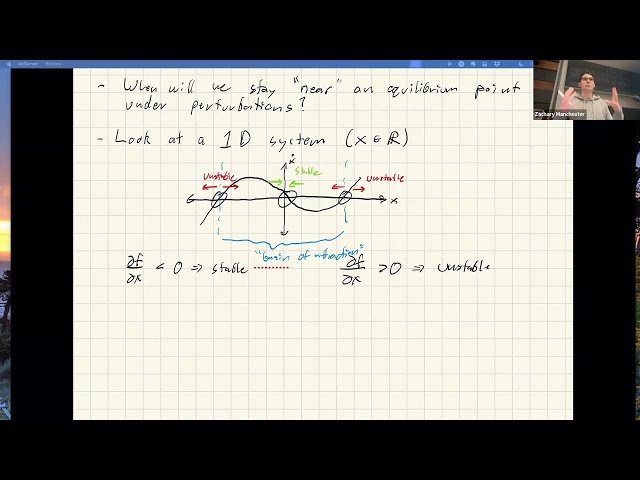 - When will we stay "near" an equilibrium point
under perturbations?
- Look at a 1D system (x ∈ ℝ)
ẋ
unstable
stable
unstable
x
"basin of attraction"
∂f/∂x < 0 ⇒ stable
∂f/∂x > 0 ⇒ unstable
Zachary Manchester
Window